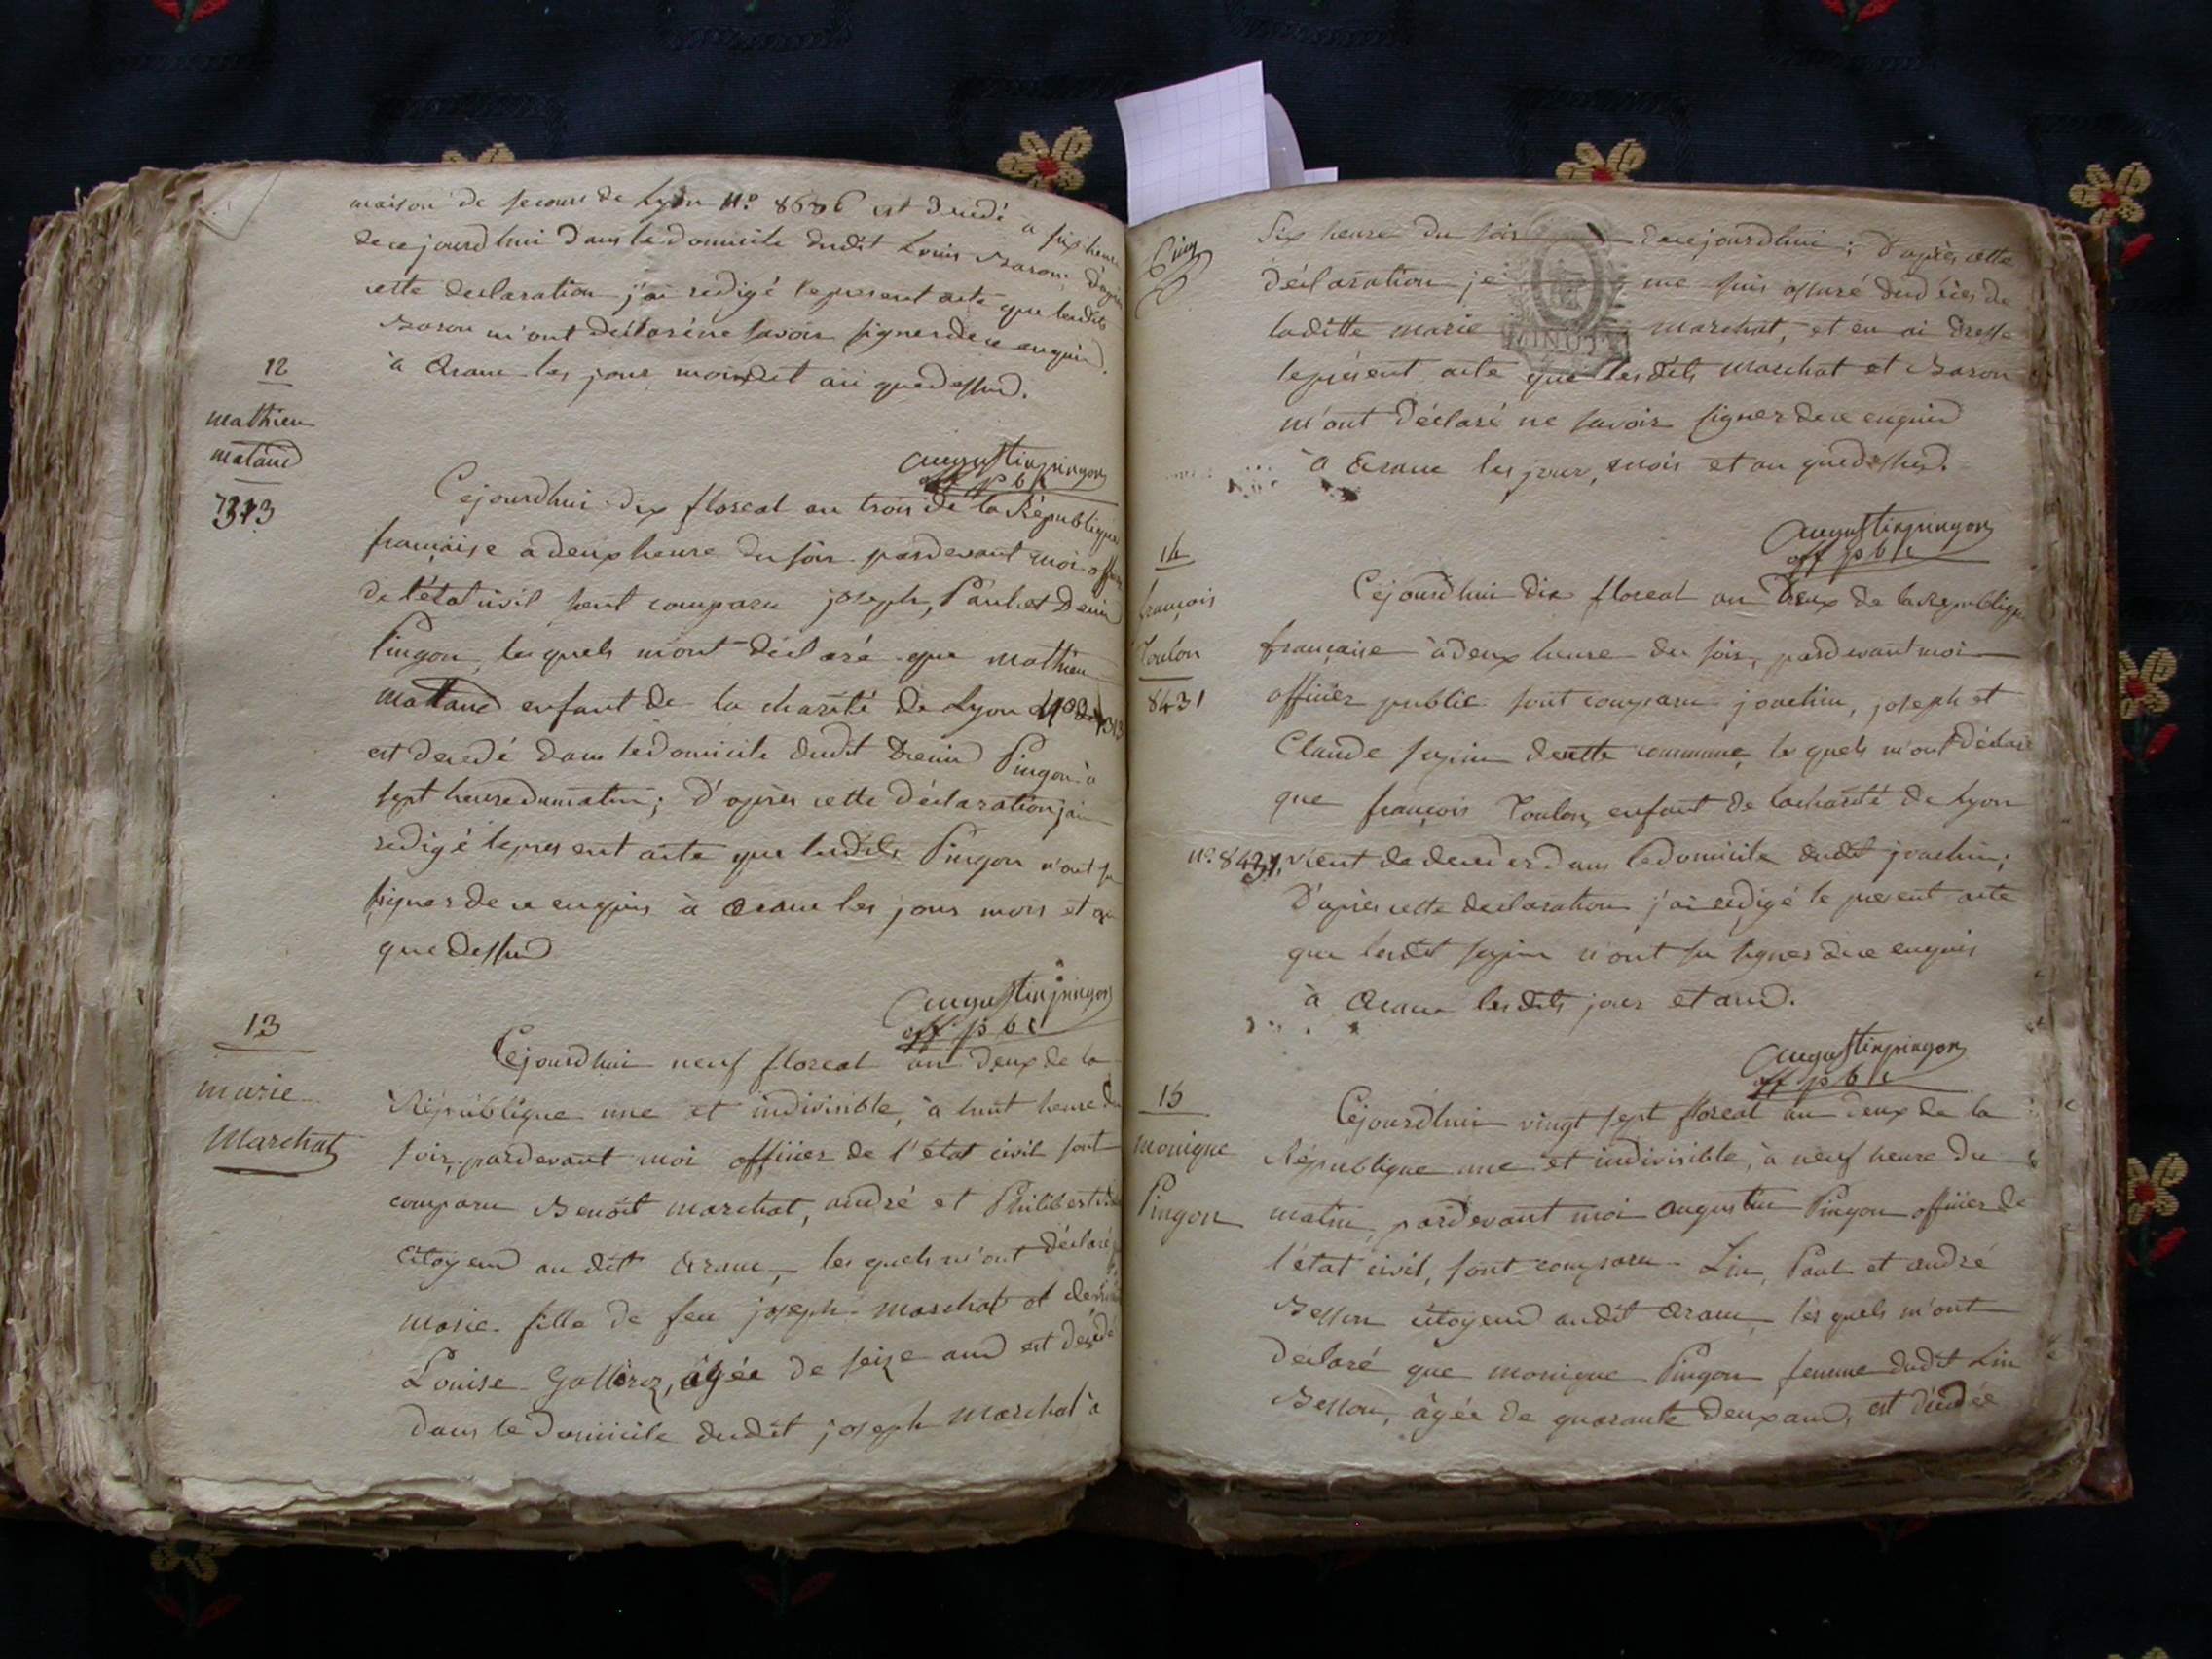 maison de secours de Lyon N.° 8686 est décédé à six heure
de cejourdhui dans le domicile dudit Louis Baron; d'après
cette declaration j'ai redigé le present acte que lesdits
Baron m'ont déclaré ne savoir signer de ce enquis
à Aranc les jour mois et an que dessus.
augustin pingon
off pblc
12
mathieu
mataud
7313
Cejourdhui dix floreal an trois de la République
françaisе a deux heure du soir pardevant moi officier
de l'état civil sont comparu joseph, Paul et Denis
Pingon, les quels m'ont déclaré que mathieu
mataud enfant de la charité de Lyon N° 7313
est decedé dans le domicile dudit Denis Pingon à
sept heure du matin; D'après cette déclaration j'ai
redigé le present acte que lesdits Pingon n'ont su
signer de ce enquis à Aranc les jour mois et an
que dessus
augustin pingon
off pblc
13
marie
Marchat
Cejourdhui neuf floreal an deux de la
République une et indivisible, à huit heure du
soir, pardevant moi officier de l'état civil sont
comparu Benoit marchat, andré et Philibert
citoyens au dit Aranc, les quels m'ont déclaré
marie fille de feu joseph marchat et de
Louise Gallerez, âgée de seize ans est décédé
dans le domicile dudit joseph Marchat à
six heure du soir decejourdhui; D'après cette
déclaration je me suis assuré du décès de
laditte marie marchat, et en ai dressé
le présent acte que lesdits marchat et Baron
m'ont déclaré ne savoir signer de ce enquis
à Aranc les jour, mois et an que dessus.
MINUTE
augustin pingon
off pblc
14
françois
Toulon
8431
Cejourdhui dix floreal an Deux de la Republique
française à deux heure du soir, pardevant moi
officier public sont comparu joachim, joseph et
Claude de cette commune, les quels m'ont déclaré
que françois Toulon, enfant de la charité de Lyon
n.° 8431, vient de deceder dans le domicile dudit joachim;
D'après cette declaration j'ai redigé le present acte
que lesdit n'ont su signer de ce enquis
à Aranc lesdits jour et ans.
augustin pingon
off pblc
15
monique
Pingon
Cejourdhui vingt sept floreal an deux de la
République une et indivisible, à neuf heure du
matin, pardevant moi augustin Pingon officier de
l'état civil, sont comparu Lin, Paul et andré
Besson citoyens audit Aranc, les quels m'ont
declaré que monique Pingon femme dudit Lin
Besson, âgée de quarante deux ans, est décédée